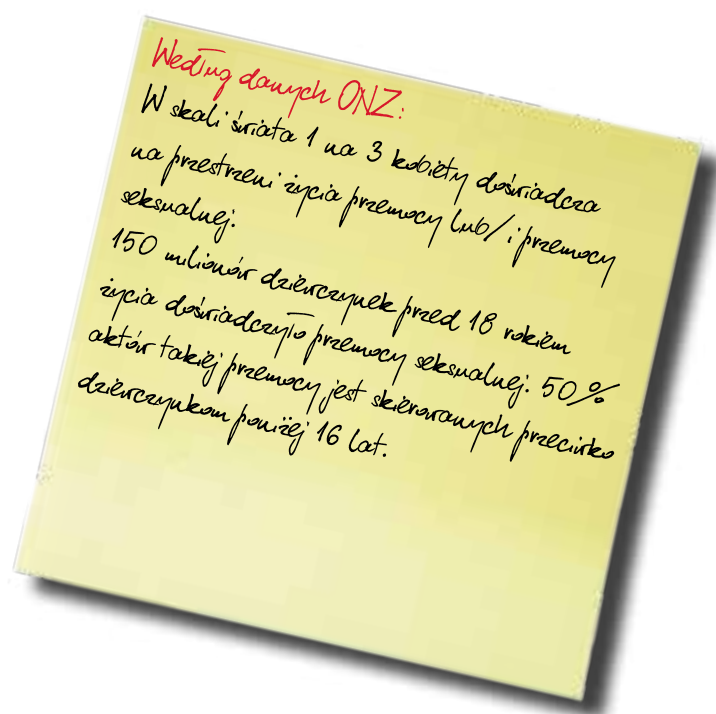 Według danych ONZ:
W skali świata 1 na 3 kobiety doświadcza
na przestrzeni życia przemocy lub/i przemocy
seksualnej.
150 milionów dziewczynek przed 18 rokiem
życia doświadczyło przemocy seksualnej. 50%
aktów takiej przemocy jest skierowanych przeciwko
dziewczynkom poniżej 16 lat.